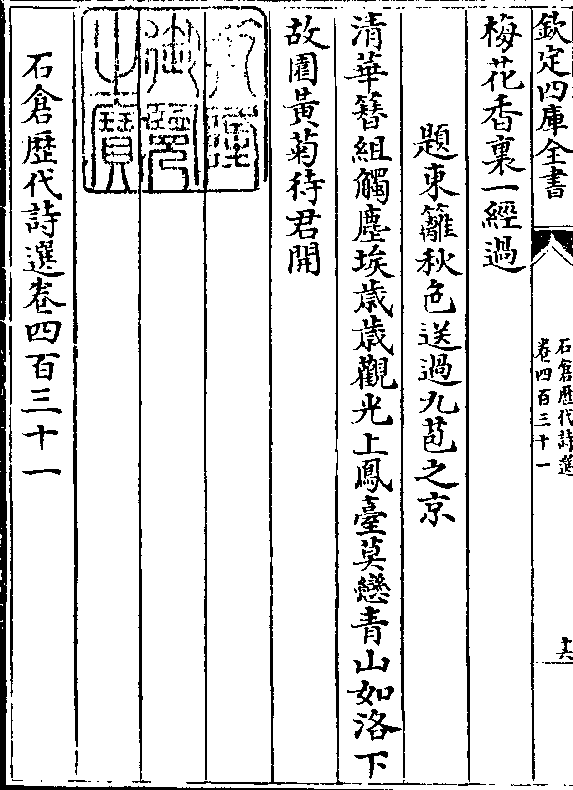 欽定四庫全書
石倉歷代詩選
卷四百三十一
十六
梅花香裏一經過
題東籬秋色送過九苞之京
清華簮組觸塵埃歲歲觀光上鳳臺莫戀青山如洛下
故園黃菊待君開
乾隆
御覽
之寶
石倉歷代詩選卷四百三十一